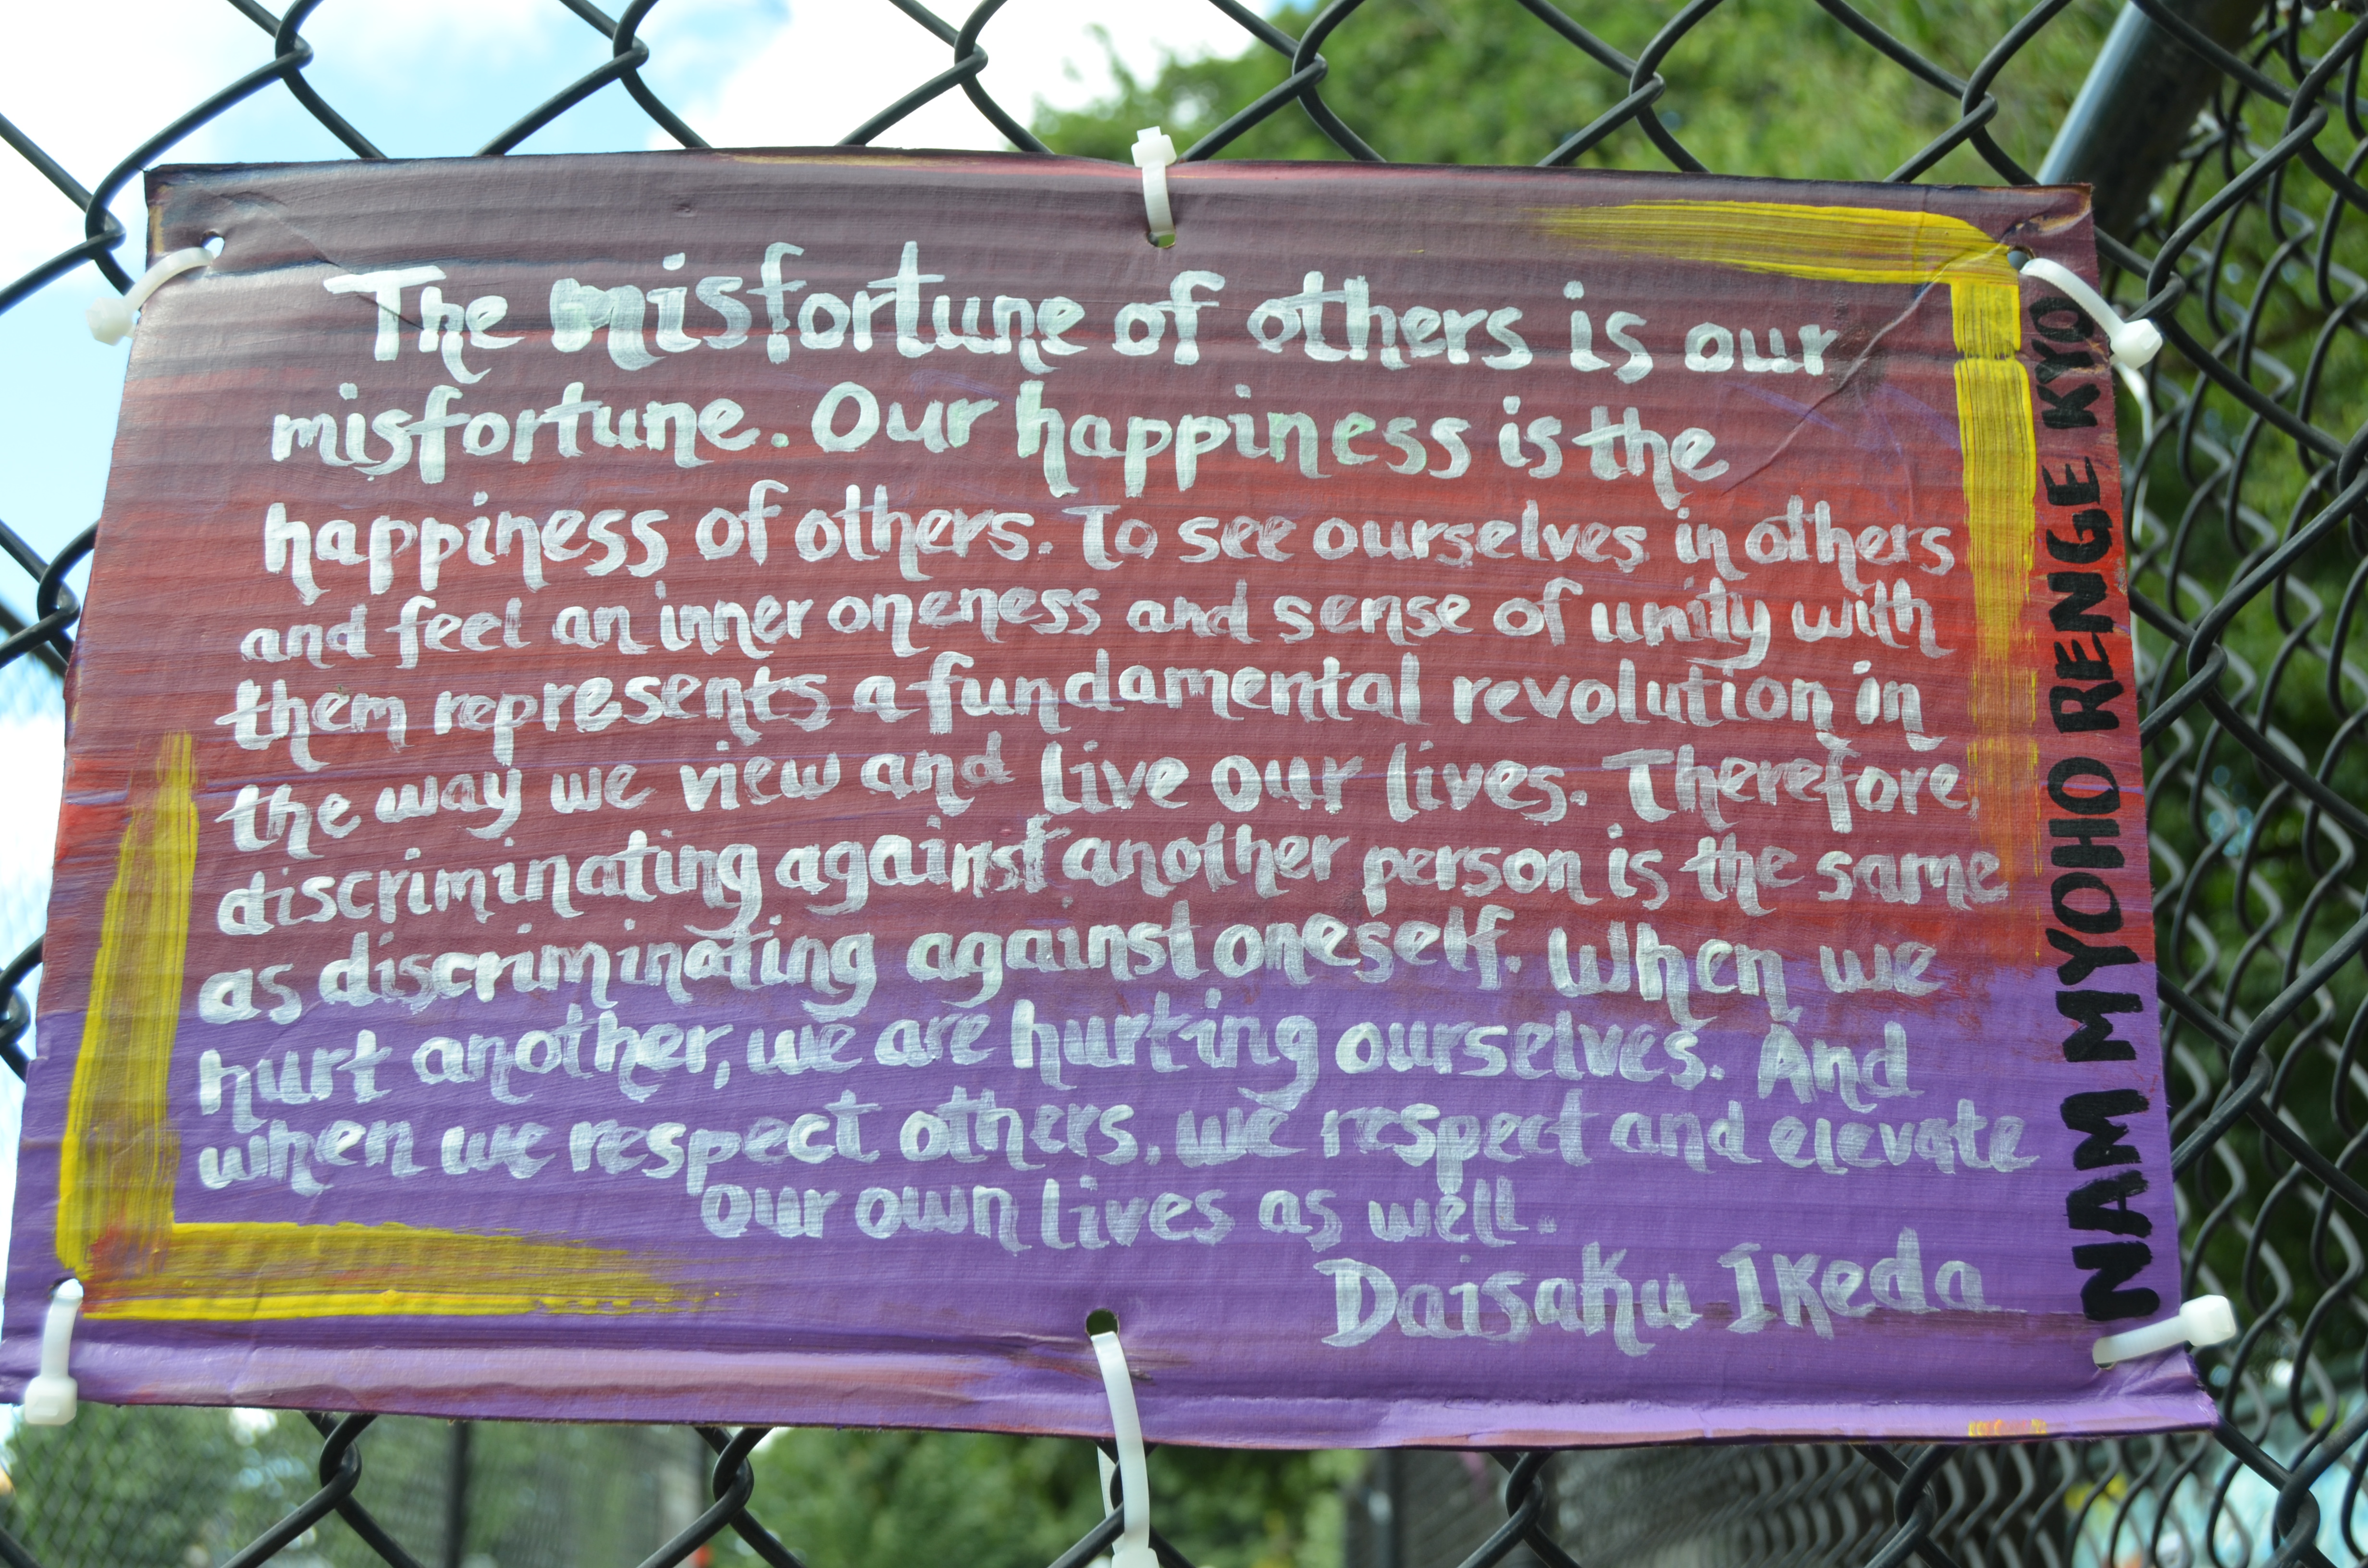 The misfortune of others is our
misfortune. Our happiness is the
happiness of others. To see ourselves in others
and feel an inner oneness and sense of unity with
them represents a fundamental revolution in
the way we view and live our lives. Therefore,
discriminating against another person is the same
as discriminating against oneself. When we
hurt another, we are hurting ourselves. And
when we respect others, we respect and elevate
our own lives as well.
Daisaku Ikeda
NAM MYOHO RENGE KYO